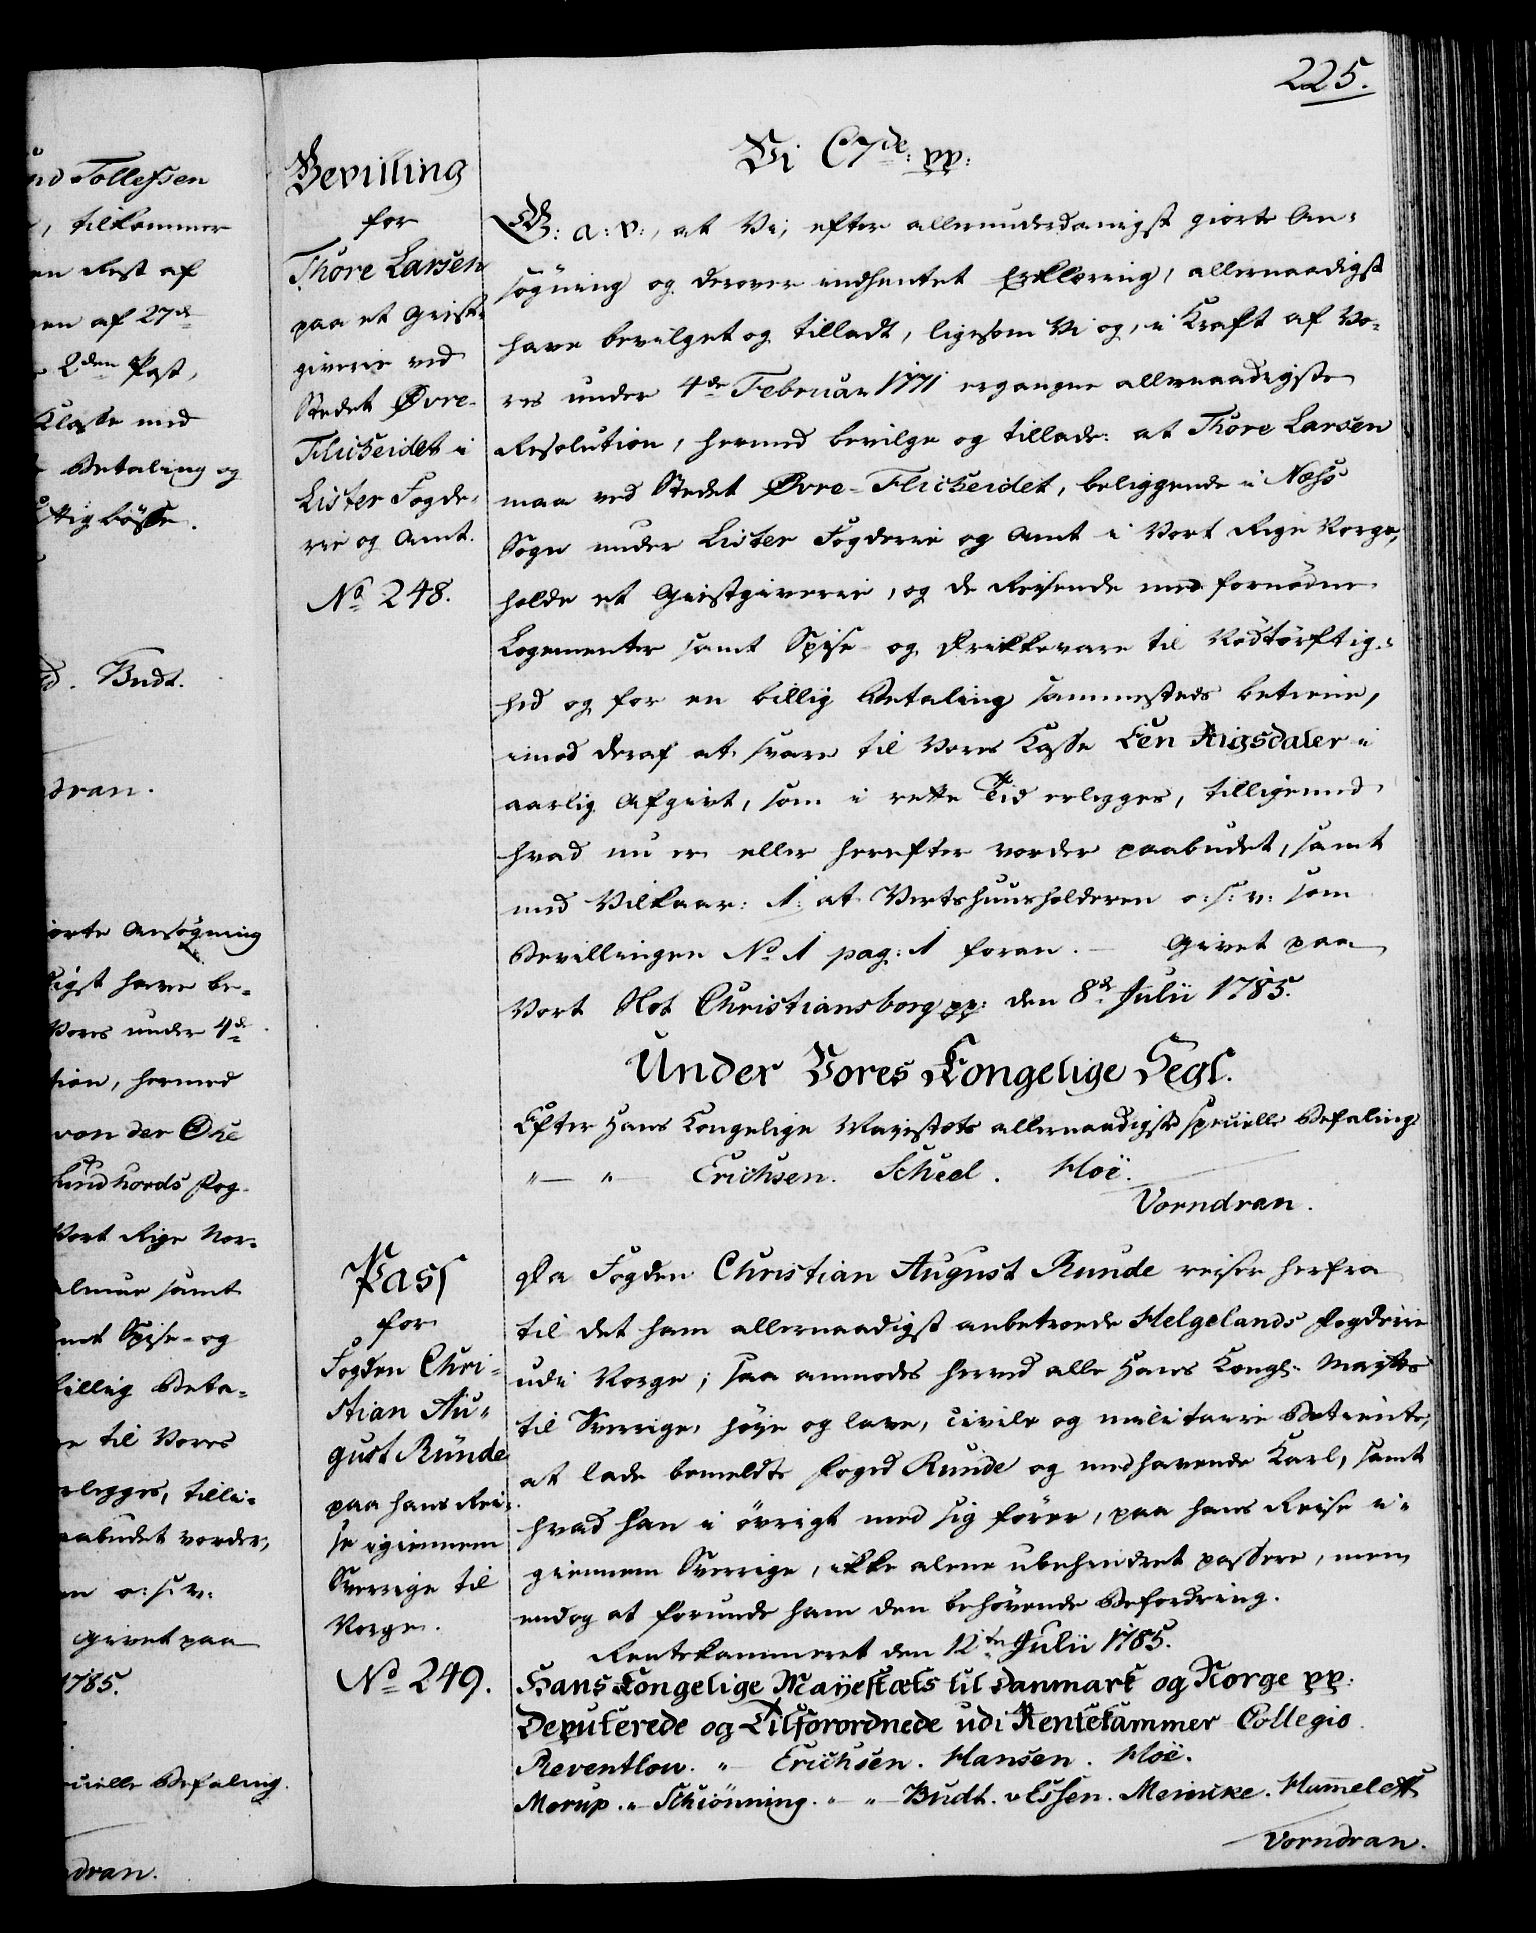 225.
nd Tollefsen
, tilkommer
en Rest af
en af 27de
2den Post,
Klasse med
Betaling og
ttigbösse.
Budt.
dran.
iorte Ansøgning
digst have be-
Vores under 4de
tion, hermed
von der Ohe
Sundhords Fog-
Vort Rige Nor-
almue samt
samt Spise- og
billig Beta-
re til Vores
erlegges, tilli-
aabudet vorder,
en o: s: v:
Givet paa
1785.
cielle Befaling.
ndran.
Bevilling
for
Thore Larsen
paa et Giest-
giverie ved
Stedet Øvre-
Flicheidet i
Lister Fogde-
rie og Amt.
No 248.
Vi C7de: pp:
G: a: v:, at Vi, efter allerunderdanigst giorte An-
søgning og derover indhentet Erklæring, allernaadigst
have bevilget og tilladt, ligesom Vi og, i Kraft af Vo-
res under 4de Februar 1771 ergangne allernaadigste
Resolution, hermed bevilge og tillade: at Thore Larsen
maa ved Stedet Øvre-Flicheidet, beliggende i Næhs
Sogn under Lister Fogderie og Amt i Vort Rige Norge,
holde et Giestgiverie, og de Reisende med fornødne
Logementer samt Spise- og Drikkevare til Nødtørftig-
hed og for en billig Betaling sammesteds betiene,
imod deraf at svare til Vores Kasse Een Rigsdaler i
aarlig Afgivt, som i rette Tid erlegges, tilligemed
hvad nu er eller herefter vorder paabudet, samt
med Vilkaar: 1: at Vertshuusholderen o: s: v: som
Bevillingen No 1 pag: 1 foran. — Givet paa
Vort Slot Christiansborg pp: den 8de Julii 1785.
Under Vores Kongelige Segl.
Efter Hans Kongelige Mayestæts allernaadigste specielle Befaling
" — " — Erichsen. Scheel. Hoë.
Vorndran.
Pass
for
Fogden Chri-
stian Au-
gust Runde
paa hans Rei-
se igiennem
Sverrige til
Norge.
No 249.
Da Fogden Christian August Runde reiser herfra
til det ham allernaadigst anbetroede Helgelands Fogderie
udi Norge; saa anmodes herved alle Hans Kongl: Mayts
til Sverrige, høye og lave, civile og militaire Betiente,
at lade bemeldte Foged Runde og medhavende Karl, samt
hvad han i øvrigt med sig fører, paa hans Reise i-
giennem Sverrige, ikke alene ubehindret passere, men
endog at forunde ham den behøvende Befordring.
Rentekammeret den 12te Julii 1785.
Hans Kongelige Mayestæts til Danmark og Norge pp:
Deputerede og Tilforordnede udi Rentekammer-Collegio.
Reventlow. " — Erichsen. Hansen. Hoë.
Morup. " Schiönning. " — " — Budt. v Essen. Meincke. Hummeleff
Vorndran.